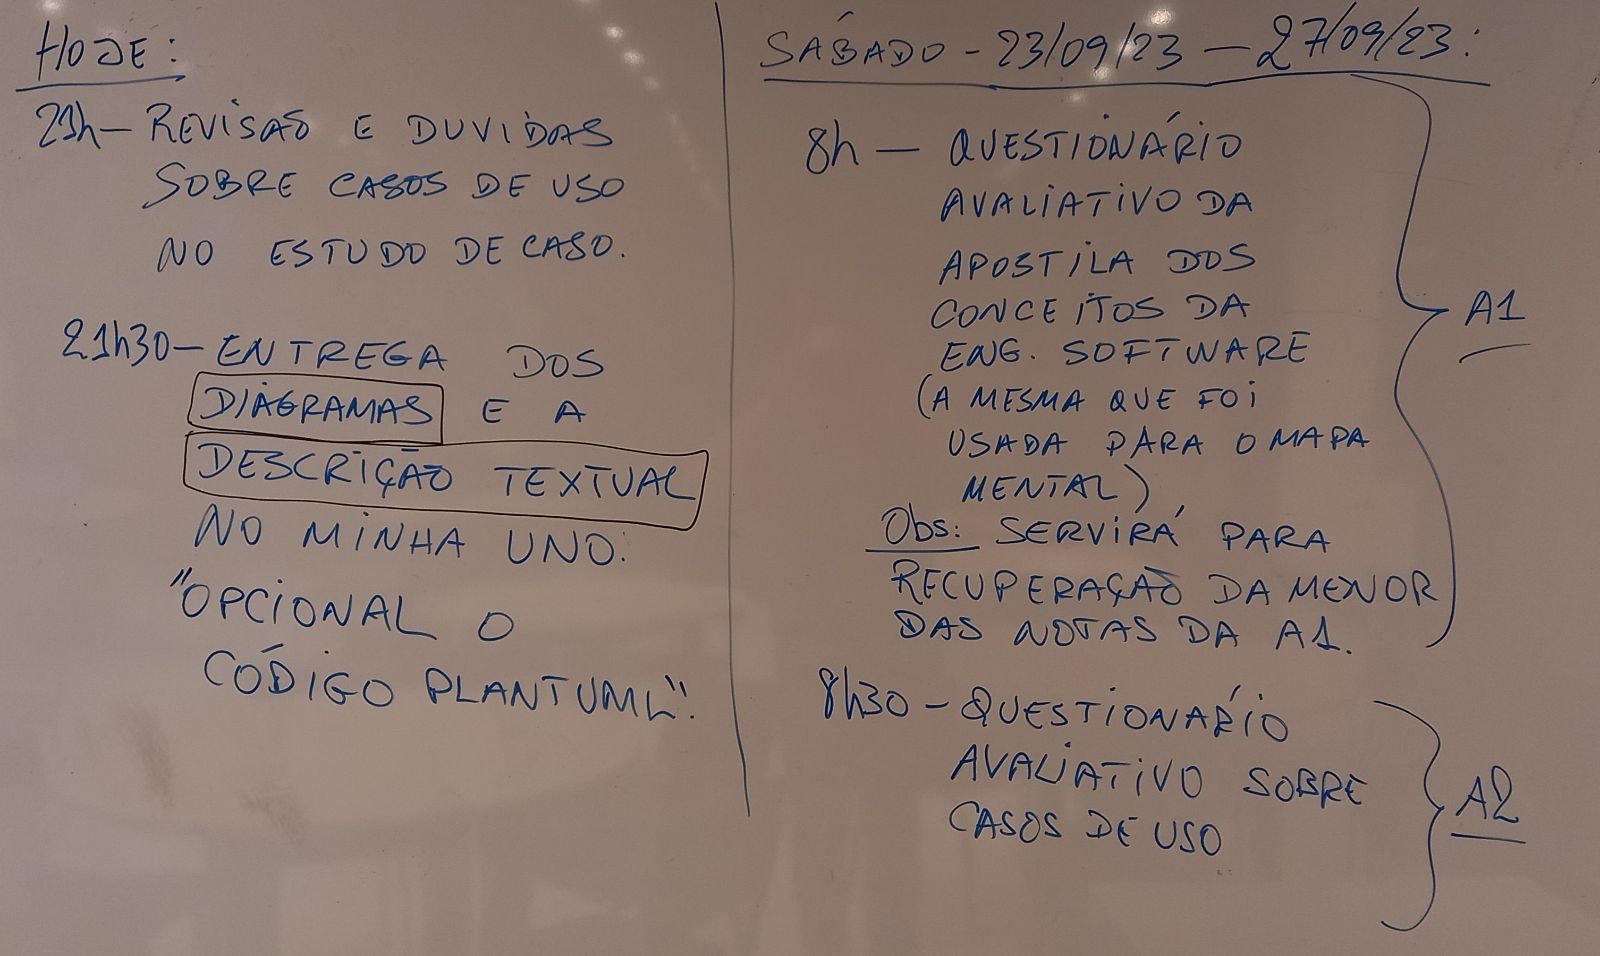 HOJE:
21h - REVISÃO E DUVIDAS
SOBRE CASOS DE USO
NO ESTUDO DE CASO.
21h30 - ENTREGA DOS
DIAGRAMAS E A
DESCRIÇÃO TEXTUAL
NO MINHA UNO.
"OPCIONAL O
CÓDIGO PLANTUML".
SÁBADO - 23/09/23 - 27/09/23:
8h - QUESTIONÁRIO
AVALIATIVO DA
APOSTILA DOS
CONCEITOS DA
ENG. SOFTWARE
(A MESMA QUE FOI
USADA PARA O MAPA
MENTAL)
Obs: SERVIRÁ PARA
RECUPERAÇÃO DA MENOR
DAS NOTAS DA A1.
A1
8h30 - QUESTIONÁRIO
AVALIATIVO SOBRE
CASOS DE USO
A2